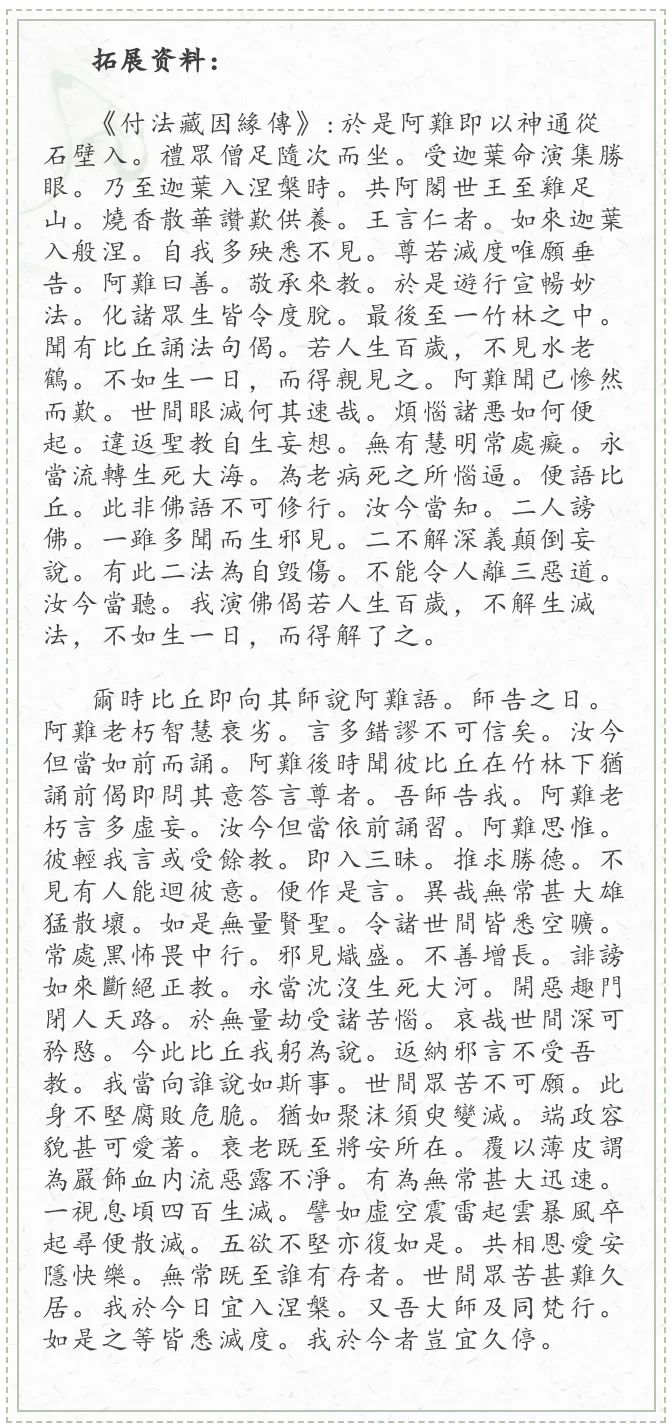 拓展资料：
《付法藏因緣傳》:於是阿難即以神通從
石壁入。禮眾僧足隨次而坐。受迦葉命演集勝
眼。乃至迦葉入涅槃時。共阿闍世王至雞足
山。燒香散華讚歎供養。王言仁者。如來迦葉
入般涅。自我多殃悉不見。尊若滅度唯願垂
告。阿難曰善。敬承來教。於是遊行宣暢妙
法。化諸眾生皆令度脫。最後至一竹林之中。
聞有比丘誦法句偈。若人生百歲，不見水老
鶴。不如生一日，而得親見之。阿難聞已慘然
而歎。世間眼滅何其速哉。煩惱諸悪如何便
起。違返聖教自生妄想。無有慧明常處癡。永
當流轉生死大海。為老病死之所惱逼。便語比
丘。此非佛語不可修行。汝今當知。二人謗
佛。一雖多聞而生邪見。二不解深義顛倒妄
說。有此二法為自毀傷。不能令人離三惡道。
汝今當聽。我演佛偈若人生百歲，不解生滅
法，不如生一日，而得解了之。
爾時比丘即向其師說阿難語。師告之曰。
阿難老朽智慧衰劣。言多錯謬不可信矣。汝今
但當如前而誦。阿難後時聞彼比丘在竹林下猶
誦前偈即問其意答言尊者。吾師告我。阿難老
朽言多虛妄。汝今但當依前誦習。阿難思惟。
彼輕我言或受餘教。即入三昧。推求勝德。不
見有人能迴彼意。便作是言。異哉無常甚大雄
猛散壞。如是無量賢聖。令諸世間皆悉空曠。
常處黑怖畏中行。邪見熾盛。不善增長。誹謗
如來斷絕正教。永當沈沒生死大河。開惡趣門
閉人天路。於無量劫受諸苦惱。哀哉世間深可
矜愍。今此比丘我躬為說。返納邪言不受吾
教。我當向誰說如斯事。世間眾苦不可願。此
身不堅腐敗危脆。猶如聚沫須臾變滅。端政容
貌甚可愛著。衰老既至將安所在。覆以薄皮謂
為嚴飾血内流惡露不淨。有為無常甚大迅速。
一視息頃四百生滅。譬如虛空震雷起雲暴風卒
起尋便散滅。五欲不堅亦復如是。共相恩愛安
隱快樂。無常既至誰有存者。世間眾苦甚難久
居。我於今日宜入涅槃。又吾大師及同梵行。
如是之等皆悉滅度。我於今者豈宜久停。